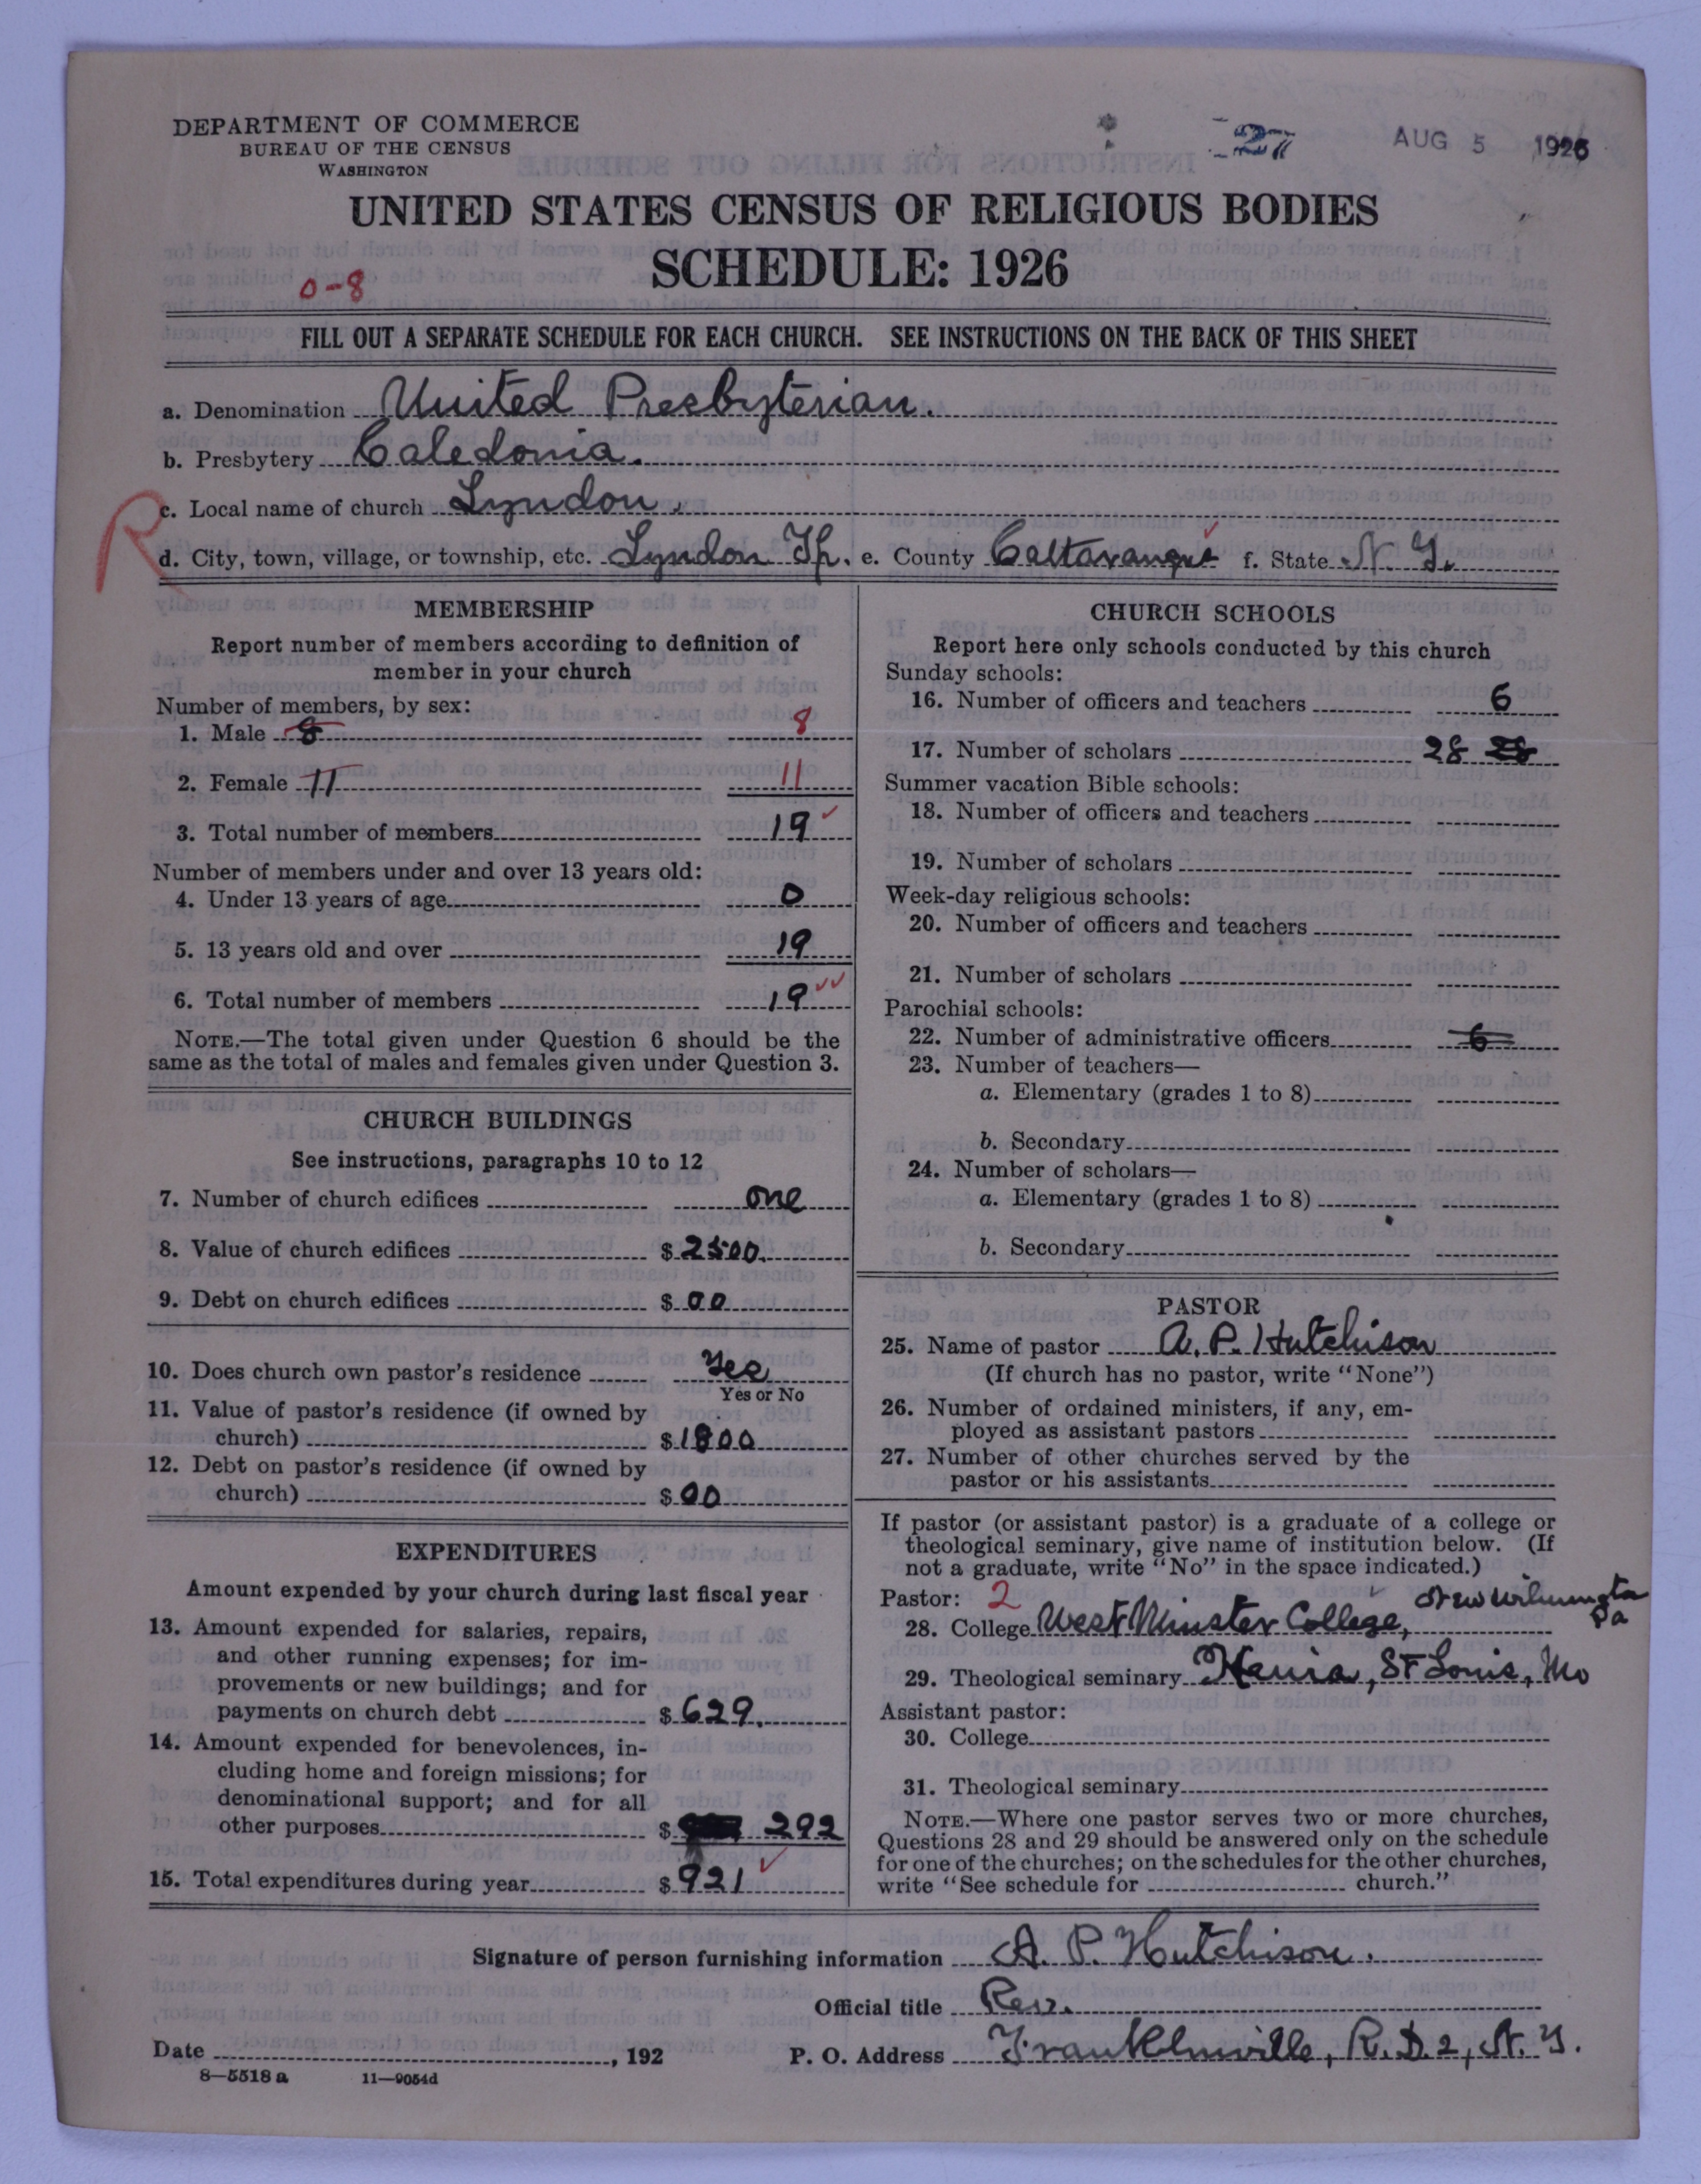 DEPARTMENT OF COMMERCE
BUREAU OF THE CENSUS
WASHINGTON
27
AUG 5 1926
UNITED STATES CENSUS OF RELIGIOUS BODIES
SCHEDULE: 1926
0-8
FILL OUT A SEPARATE SCHEDULE FOR EACH CHURCH. SEE INSTRUCTIONS ON THE BACK OF THIS SHEET
a. Denomination United Presbyterian.
b. Presbytery Caledonia.
R
c. Local name of church Lyndon.
d. City, town, village, or township, etc. Lyndon Tp. e. County f. State N. Y.
MEMBERSHIP
Report number of members according to definition of
member in your church
Number of members, by sex:
1. Male 8 8
2. Female 11 11
3. Total number of members 19
Number of members under and over 13 years old:
4. Under 13 years of age 0
5. 13 years old and over 19
6. Total number of members 19
NOTE.—The total given under Question 6 should be the
same as the total of males and females given under Question 3.
CHURCH BUILDINGS
See instructions, paragraphs 10 to 12
7. Number of church edifices one
8. Value of church edifices $ 2500.
9. Debt on church edifices $ 00
10. Does church own pastor's residence Yes
Yes or No
11. Value of pastor's residence (if owned by
church) $ 1800
12. Debt on pastor's residence (if owned by
church) $ 00
EXPENDITURES
Amount expended by your church during last fiscal year
13. Amount expended for salaries, repairs,
and other running expenses; for im-
provements or new buildings; and for
payments on church debt $ 629.
14. Amount expended for benevolences, in-
cluding home and foreign missions; for
denominational support; and for all
other purposes $ 292
15. Total expenditures during year $ 921
CHURCH SCHOOLS
Report here only schools conducted by this church
Sunday schools:
16. Number of officers and teachers 6
17. Number of scholars 28 28
Summer vacation Bible schools:
18. Number of officers and teachers
19. Number of scholars
Week-day religious schools:
20. Number of officers and teachers
21. Number of scholars
Parochial schools:
22. Number of administrative officers 6
23. Number of teachers—
a. Elementary (grades 1 to 8)
b. Secondary
24. Number of scholars—
a. Elementary (grades 1 to 8)
b. Secondary
PASTOR
25. Name of pastor A. P. Hutchison
(If church has no pastor, write "None")
26. Number of ordained ministers, if any, em-
ployed as assistant pastors
27. Number of other churches served by the
pastor or his assistants
If pastor (or assistant pastor) is a graduate of a college or
theological seminary, give name of institution below. (If
not a graduate, write "No" in the space indicated.)
Pastor: 2
28. College West Minster College, New Wilmington Pa
29. Theological seminary Xenia, St Louis, Mo
Assistant pastor:
30. College
31. Theological seminary
NOTE.—Where one pastor serves two or more churches,
Questions 28 and 29 should be answered only on the schedule
for one of the churches; on the schedules for the other churches,
write "See schedule for church."
Signature of person furnishing information A. P. Hutchison.
Official title Rev.
Date , 192 P. O. Address Franklinville, R. D. 2, N. Y.
8—5518 a 11—9054d